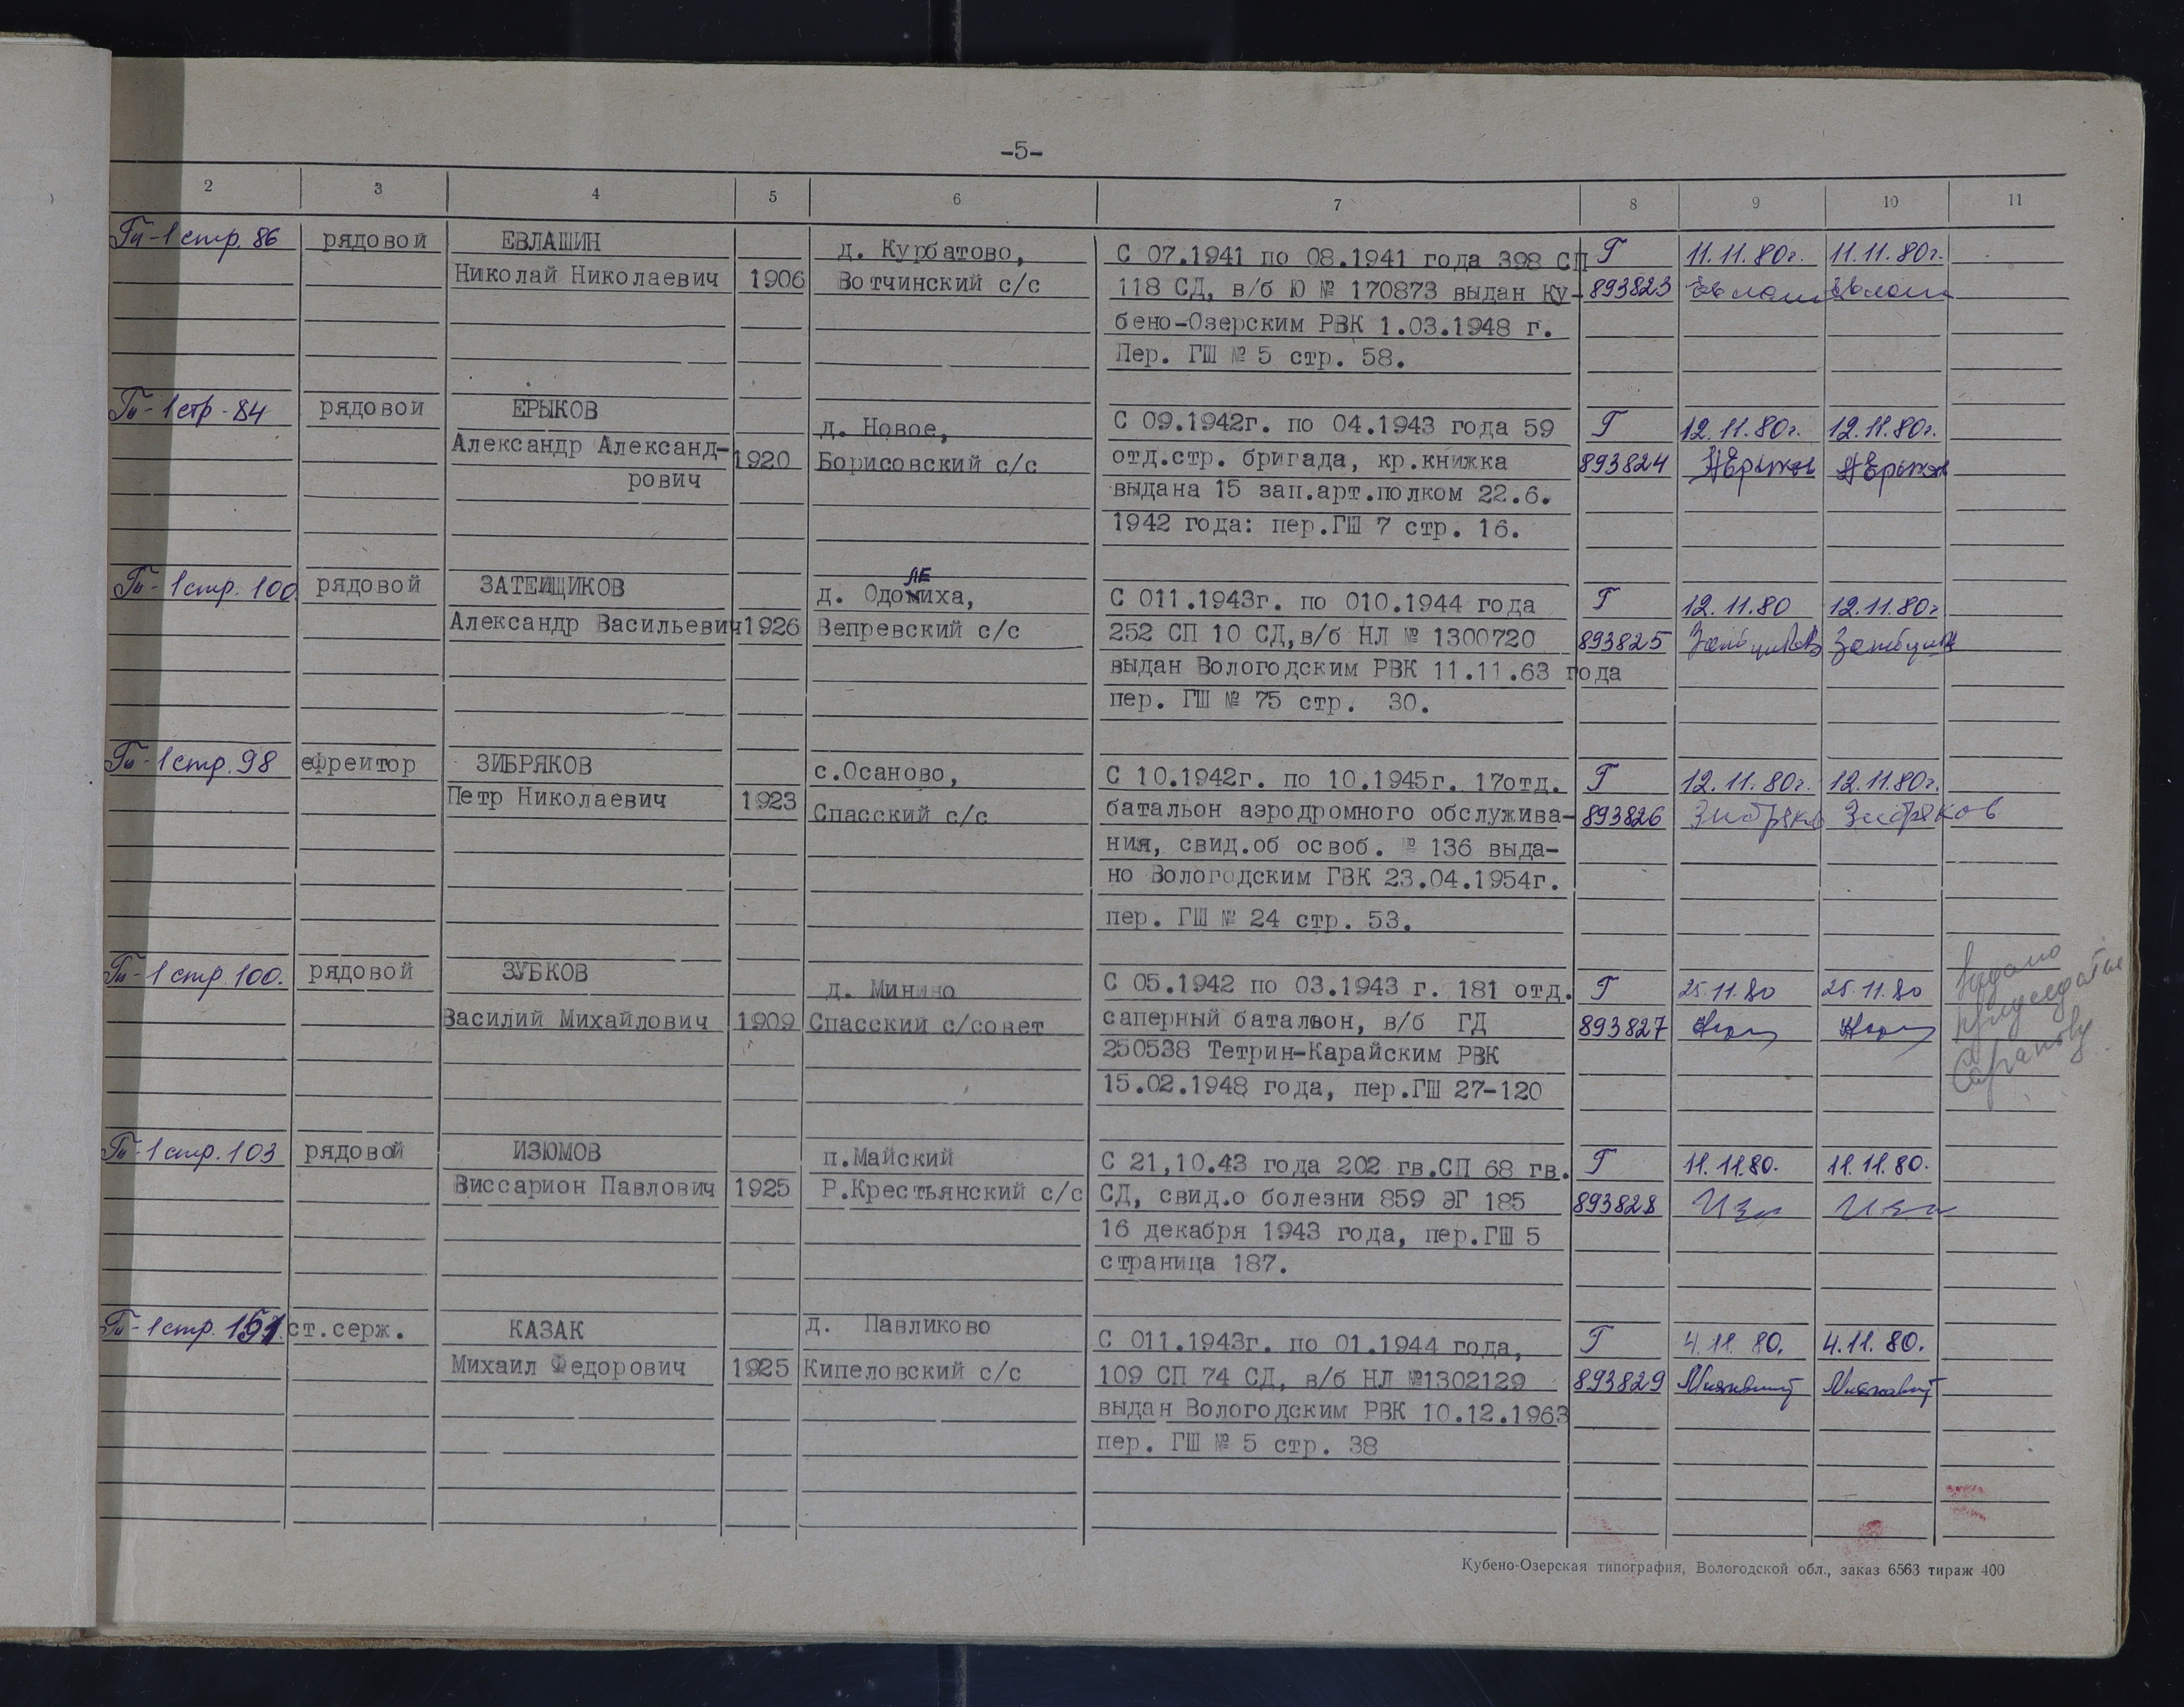 -5-
2 3 4 5 6 7 8 9 10 11
Гп-1 стр. 86 рядовой ЕВЛАШИН д. Курбатово, С 07.1941 по 08.1941 года 398 СП Г 11.11.80г. 11.11.80г.
Николай Николаевич 1906 Вотчинский с/с 118 СД, в/б Ю № 170873 выдан Ку- 893823
бено-Озерским РВК 1.03.1948 г.
Пер. ГШ № 5 стр. 58.
Гп-1 стр-84 рядовой ЕРЫКОВ д. Новое, С 09.1942г. по 04.1943 года 59 Г 12.11.80г. 12.11.80г.
Александр Александ- 1920 Борисовский с/с отд.стр. бригада, кр.книжка 893824 АЕрыков АЕрыков
рович выдана 15 зап.арт.полком 22.6.
1942 года: пер.ГШ 7 стр. 16.
ЛЕ
Гп-1 стр. 100 рядовой ЗАТЕЙЩИКОВ д. Одомиха, С 011.1943г. по 010.1944 года Г 12.11.80 12.11.80г
Александр Васильевич 1926 Вепревский с/с 252 СП 10 СД,в/б НЛ № 1300720 893825
выдан Вологодским РВК 11.11.63 года
пер. ГШ № 75 стр. 30.
Гп-1 стр. 98 ефрейтор ЗИБРЯКОВ с.Осаново, С 10.1942г. по 10.1945г. 17отд. Г 12.11.80г. 12.11.80г.
Петр Николаевич 1923 Спасский с/с батальон аэродромного обслужива- 893826 Зибряко Зибряков
ния, свид.об освоб. № 136 выда-
но Вологодским ГВК 23.04.1954г.
пер. ГШ № 24 стр. 53.
Гп-1 стр. 100. рядовой ЗУБКОВ д. Минино С 05.1942 по 03.1943 г. 181 отд. Г 25.11.80 25.11.80 Выдано
Василий Михайлович 1909 Спасский с/совет саперный батальон, в/б ГД 893827
250538 Тетрин-Карайским РВК
15.02.1948 года, пер.ГШ 27-120
Гп-1 стр. 103 рядовой ИЗЮМОВ п.Майский С 21,10.43 года 202 гв.СП 68 гв. Г 11.11.80. 11.11.80.
Виссарион Павлович 1925 Р.Крестьянский с/с СД, свид.о болезни 859 ЭГ 185 893828
16 декабря 1943 года, пер.ГШ 5
страница 187.
Гп-1 стр. 151 ст.серж. КАЗАК д. Павликово С 011.1943г. по 01.1944 года, Г 4.11.80. 4.11.80.
Михаил Федорович 1925 Кипеловский с/с 109 СП 74 СД, в/б НЛ №1302129 893829
выдан Вологодским РВК 10.12.1963
пер. ГШ № 5 стр. 38
Кубено-Озерская типография, Вологодской обл., заказ 6563 тираж 400